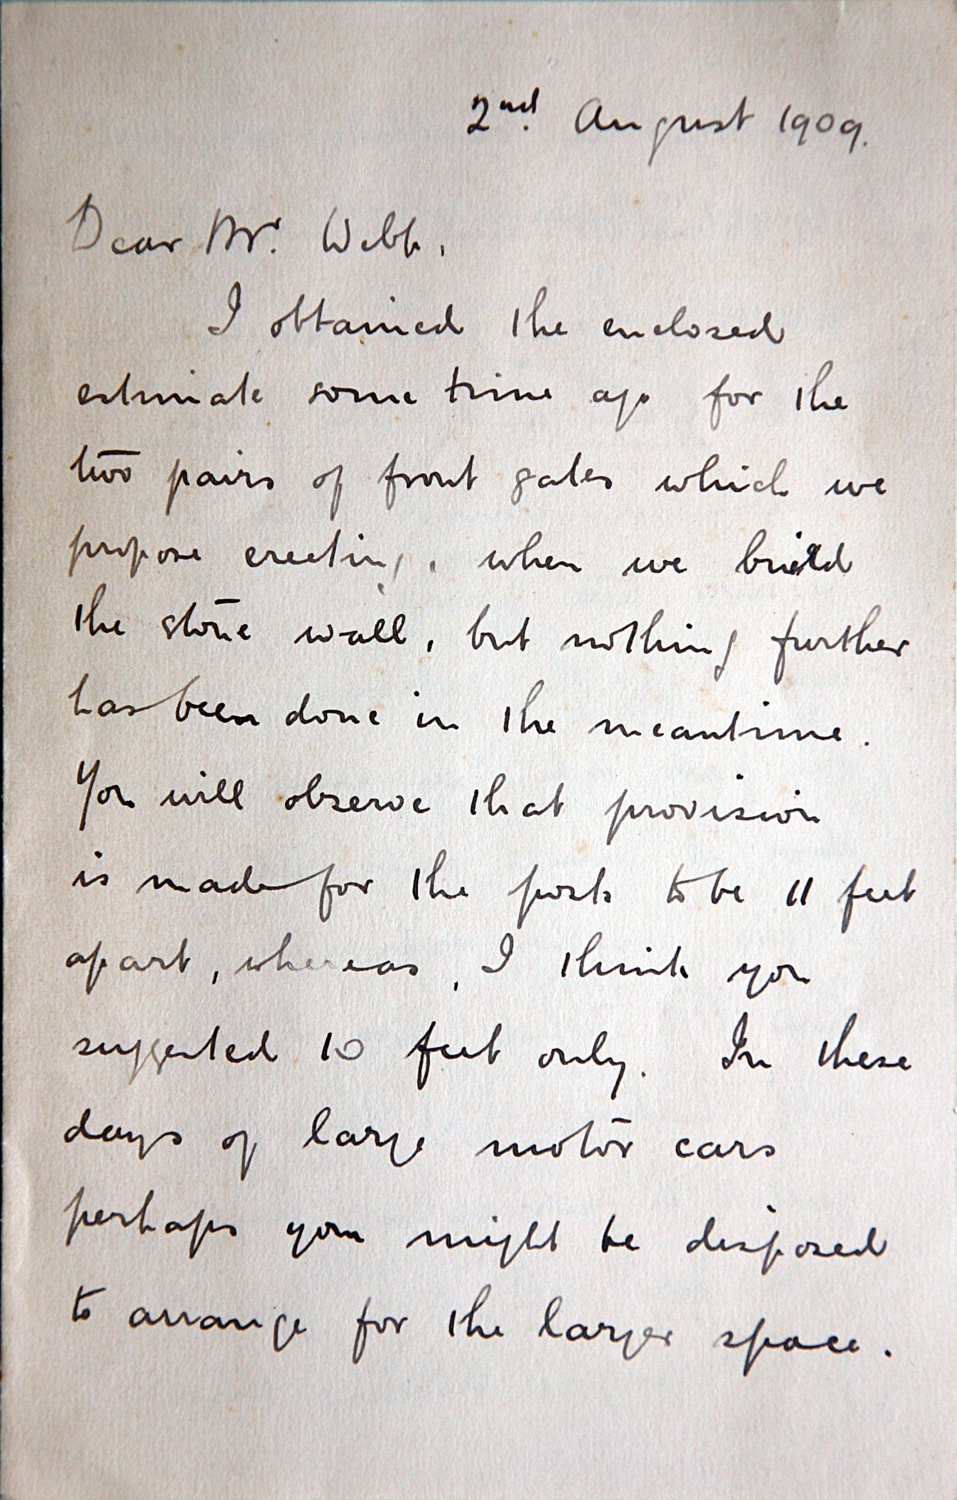 2nd. August 1909.
Dear Mr. Webb,
I obtained the enclosed
estimate some time ago for the
two pairs of front gates which we
propose erecting, when we build
the stone wall, but nothing further
has been done in the meantime.
You will observe that provision
is made for the posts to be 11 feet
apart, whereas, I think you
suggested 10 feet only. In these
days of large motor cars
perhaps you might be disposed
to arrange for the larger space.